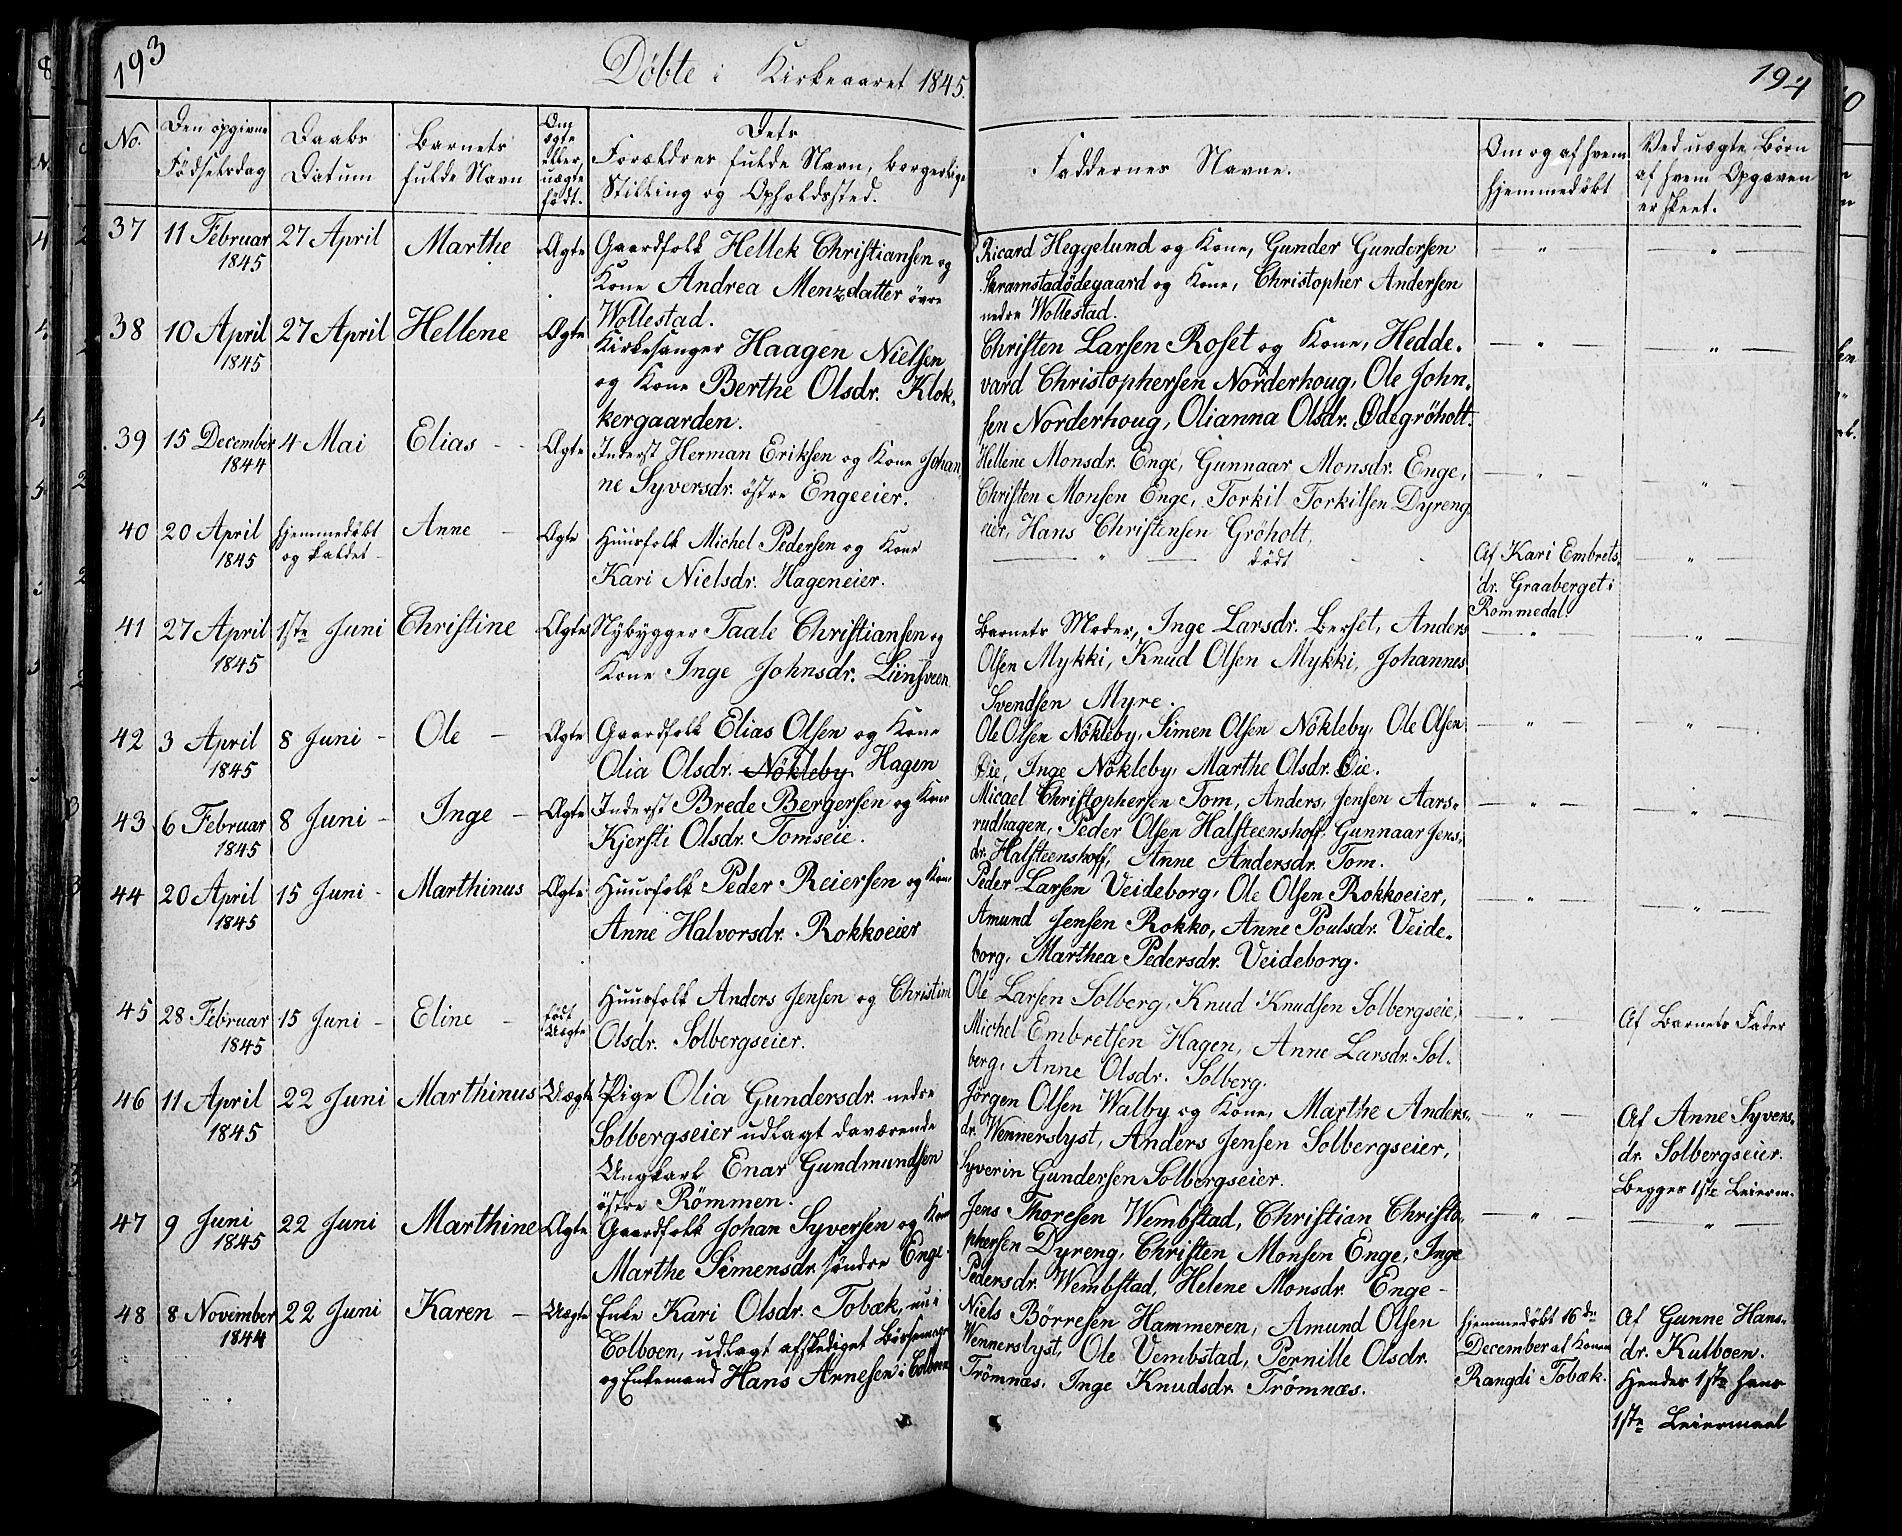 193
Døbte i Kirkeaaret 1845.
194
No. Den opgivne Fødselsdag Daabs Datum Barnets fulde Navn Om ægte eller uægte født. Dets Forældres fulde Navn, borgerlige Stilling og Opholdssted. Faddernes Navne. Om og af hvem hjemmedøbt Ved uægte Børn af hvem Opgaven er skeet.
37 11 Februar 27 April Marthe Ægte Gaardfolk Hellek Christiansen og
1845 Kone Andrea Menzdatter övre
Wollestad.
Ricard Heggelund og Kone, Gunder Gundersen
Skramstadödegaard og Kone, Christopher Andersen
nedre Wollestad.
— " — — " —
38 10 April 27 April Hellene Ægte Kirkesanger Haagen Nielsen
1845 og Kone Berthe Olsdr. Klok-
kergaarden.
Christen Larsen Roset og Kone, Hedde-
vard Christophersen Norderhoug, Ole John-
sen Norderhoug, Olianna Olsdr. Ödegröholt.
— " — — " —
39 15 December 4 Mai Elias - Ægte Inderst Herman Eriksen og Kone Johan
1844 ne Syversdr. östre Engeeier.
Hellene Monsdr. Enge, Gunnaar Monsdr. Enge,
Christen Monsen Enge, Torkil Torkilsen Dyreng
eier, Hans Christensen Gröholt.
— " — — " —
40 20 April hjemmedøbt Anne - Ægte Huusfolk Michel Pedersen og Kone
1845 og kaldet - Kari Nielsdr. Hageneier.
— " — död
Af Kari Embrets-
dr. Graaberget i
Rommedal.
— " —
41 27 April 1ste Juni Christine Ægte Nybygger Taale Christiansen og
1845 Kone Inge Johnsdr. Liensveen
Barnets Moder, Inge Larsdr. Berset, Anders
Olsen Mykki, Knud Olsen Mykki, Johannes
Svendsen Myre.
— " — — " —
42 3 April 8 Juni - Ole - Ægte Gaardfolk Elias Olsen og Kone
1845 Olia Olsdr. Nökleby Hagen
Ole Olsen Nökleby, Simen Olsen Nökleby, Ole Olsen
Öie, Inge Nökleby, Marthe Olsdr. Öie.
— " — — " —
43 6 Februar 8 Juni - Inge - Ægte Inderst Brede Bergersen og Kone
1845 Kjersti Olsdr. Tomseie.
Micael Christophersen Tom, Anders Jensen Aars-
rudhagen, Peder Olsen Halsteenshoff, Gunnaar Jens-
dr. Halsteenshoff, Anne Andersdr. Tom.
— " — — " —
44 20 April 15 Juni - Marthinus Ægte Huusfolk Peder Reiersen og Kone
1845 Anne Halvorsdr. Rokkoeier
Peder Larsen Veideborg, Ole Olsen Rokkoeier,
Amund Jensen Rokko, Anne Poulsdr. Veide-
borg, Marthea Pedersdr. Veideborg.
— " — — " —
45 28 Februar 15 Juni - Eline - født Uægte Huusfolk Anders Jensen og Christine
1845 Olsdr. Solbergseier.
Ole Larsen Solberg, Knud Knudsen Solbergseie,
Michel Embretsen Hagen, Anne Larsdr. Sol-
berg, Anne Olsdr. Solberg.
— " — Af Barnets Fader
46 11 April 22 Juni Marthinus Uægte Pige Olia Gundersdr. nedre
1845 Solbergseier udlagt daværende
Ungkarl Enar Gundmundsen
östre Römmen.
Jörgen Olsen Walby og Kone, Marthe Anders-
dr. Wennerslyst, Anders Jensen Solbergseier,
Syverin Gundersen Solbergseier.
— " — Af Anne Syvers-
dr. Solbergseier.
Begges 1ste Leierm.
47 9 Juni 22 Juni Marthine Ægte Gaardfolk Johan Syversen og Kone
1845 Marthe Simensdr. söndre Enge-
Jens Thoresen Wembstad, Christian Christo-
phersen Dyreng, Christen Monsen Enge, Inge
Pedersdr. Wembstad, Helene Monsdr. Enge -
— " — — " —
48 8 November 22 Juni Karen - Uægte Enke Kari Olsdr. Tobæk, nu i
1844 Colboen, udlagt afskediget
og Enkemand Hans Arnesen i Colboen
Niels Börresen Hammeren, Amund Olsen
Wennerslyst, Ole Vembstad, Pernille Olsdr.
Trömnæs, Inge Knudsdr. Trömnæs.
hjemmedøbt 16de
December af Konen
Rangdi Tobæk.
Af Gunne Hans-
dr. Kulboen.
Hendes 1ste hans
1ste Leiermaal